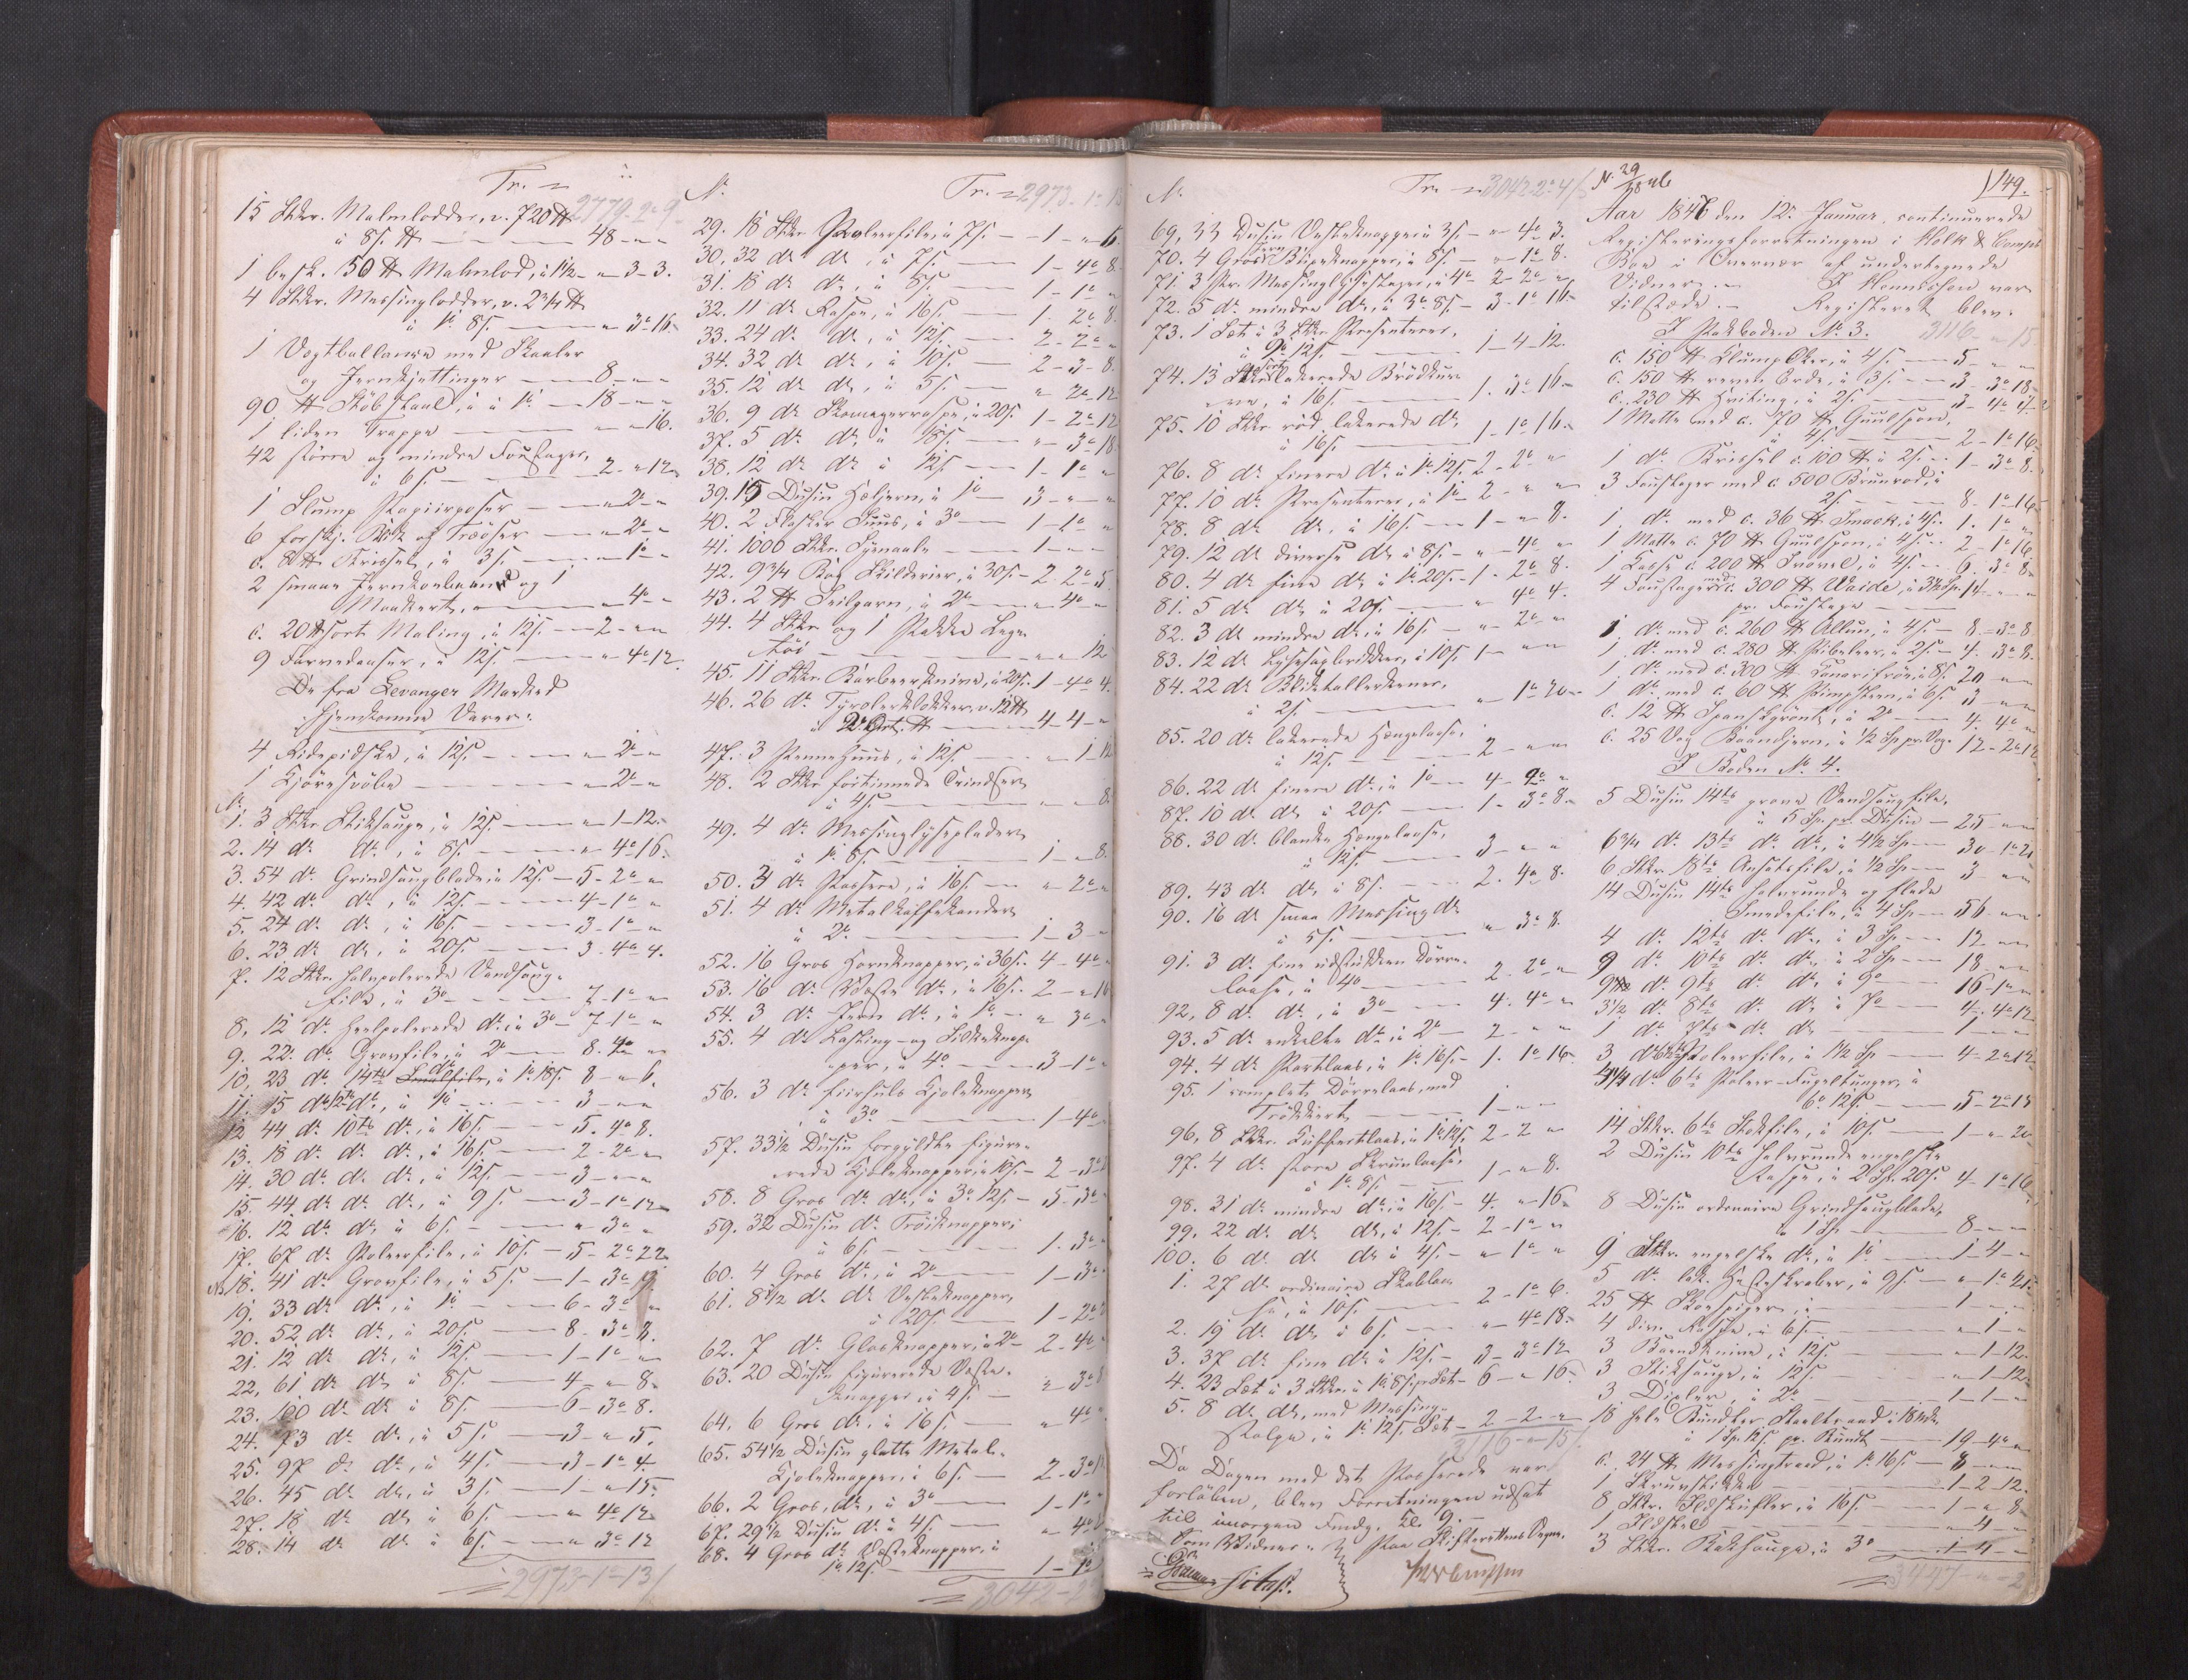 Tr. = 2779-2-9
15 Stkr. Malmlodder, v. 720 ℔
à 8 s. ℔ — 48 - " - "
1 besk. 50 ℔ Malmlod, à 1 1/2 - " - 3 - 3.
4 Stkr. Messinglodder, v. 2 3/4 ℔
1 Vægtballance med Skaaler
og Jernkjettinger — 8 - " - "
90 ℔ Stöbstaal, à 1 o — 18 - " - "
1 liden Trappe — " - " - 16.
42 större og mindre Foustager,
à 6 s. — 2 - " - 12
1 Slump Papiirposer — " - 2 - "
c. 8 ℔ Kridsel, à 3 s. — " - 1 - "
c. 20 ℔ sort Maling, à 12 s. — 2 - " - "
9 Farvedaaser, à 12 s. — " - 4 - 12.
De fra Levanger Marked
hjemkomne Varer:
4 Ridepidske, à 12 s. — " - 2 - "
1 Kjöresvöbe — " - 2 - "
No
1. 3 Stkr. Stiksauge, à 12 s. — " - 1 - 12.
2. 14 do do, à 8 s. — " - 4 - 16.
3. 54 do Grindsaugblade, à 12 s. — 5 - 2 - "
4. 42 do do, à 12 s. — 4 - 1 - "
5. 24 do do, à 16 s. — 3 - 1 - "
6. 23 do do, à 20 s. — 3 - 4 - 4.
7. 12 Stkr. halvpolerede Vandsaug-
file, à 3 o — 7 - 1 - "
8. 12 do heelpolerede do, à 3 o — 7 - 1 - "
9. 22 do Grovfile, à 2 o — 8 - 4 - "
10. 23 do 14te do, à 1 o 18 s. 8 - " - 6.
11. 15 do 12te do, à 1 o — 3 - " - "
12. 44 do 10te do, à 16 s. — 5 - 4 - 8.
13. 18 do do do, à 16 s. — 2 - 2 - "
14. 30 do do do, à 12 s. — 3 - " - "
15. 44 do do do, à 9 s. — 3 - 1 - 12
16. 12 do do, à 6 s. — " - 3 - "
17. 67 do Poleerfile, à 10 s. — 5 - 2 - 22
18. 41 do Grovfile, à 5 s. — 1 - 3 - 9
19. 33 do do, à 1 o — 6 - 3 - "
20. 52 do do, à 20 s. — 8 - 3 - 8.
21. 12 do do, à 12 s. — 1 - 1 - "
22. 61 do do, à 8 s. — 4 - " - 8
23. 100 do do à 8 s. — 6 - 3 - 8.
24. 73 do do, à 5 s. — 3 - " - 5.
25. 97 do do, à 4 s. — 3 - 1 - 4.
26. 45 do do, à 3 s. — 1 - " - 15.
27. 18 do do, à 6 s. — " - 4 - 12
28. 14 do do, à 6 s. — " - 3 - 12
= 2973-1-13
No Tr. = 2973-1-13
29. 18 Stkr Poleerfile, à 7 s. — 1 - " - 6.
30. 32 do do, à 7 s. — 1 - 4 - 8
31. 18 do do, à 8 s. — 1 - 1 - "
32. 11 do Raspe, à 16 s. — 1 - 2 - 8.
33. 24 do do, à 12 s. — 2 - 2 - "
34. 32 do do, à 10 s. — 2 - 3 - 8.
35. 12 do do, à 5 s. — " - 2 - 12
36. 9 do Skomagerraspe, à 20 s. 1 - 2 - 12
37. 5 do do à 18 s. — " - 3 - 18
38. 12 do do à 12 s. — 1 - 1 - "
39. 15 Dusin Hæljern, à 1 o — 3 - " - "
40. 2 Flasker Snuus, à 3 o — 1 - 1 - "
41. 1000 Stkr. Synaale — 1 - " - "
42. 9 3/4 Bog Skilderier, à 30 s. - 2 - 2 - 5
43. 2 ℔ Seilgarn, à 2 o — " - 4 - "
44. 4 Stkr og 1 Pakke Lege-
töi — " - " - 12
45. 11 Stkr. Barbeerknive, à 20 s. - 1 - 4 - 4.
46. 26 do Tyrolerklokker v. 12 ℔
— 4 - 4 - "
47. 3 Pennehuus, à 12 s. — " - 1 - 12
48. 2 Stkr fortinnede Trindser
à 4 s. — " - " - 8.
49. 4 do Messinglyseplader
à 1 o 8 s. — 1 - " - 8.
50. 3 do Passere, à 16 s. — " - 2 - "
51. 4 do Metalkaffekander
à 2 o — 1 - 3 - "
52. 16 Gros Hornknapper, à 36 s. 4 - 4 - "
53. 16 do Væste do, à 16 s. 2 - " - 16
54. 3 do Jern do, à 1 o — " - 3 - "
55. 4 do Lasting- og Silkeknap-
per, à 4 o — 3 - 1 - "
56. 3 do fiirhuls Kjoleknapper
à 3 o — 1 - 4 -
57. 33 1/2 Dusin forgyldte figure-
rede Kjoleknapper, à 10 s. - 2 - 3 -
58. 8 Gros do do, à 3 o 12 s. - 5 - 3 -
59. 32 Dusin do Tröieknapper,
à 6 s. — 1 - 3 -
60. 4 Gros do, à 2 o — 1 - 3 -
61. 8 1/2 do do Vesteknapper,
à 20 s. — 1 - 2 -
62. 7 do Glasknapper, à 2 o - 2 - 4 -
63. 20 Dusin figurerede Veste-
knapper, à 4 s. — " - 3 - 8
64. 6 Gros do, à 16 s. — " - 4 -
65. 54 1/2 Dusin glatte Metal-
Kjoleknapper, à 6 s. — 2 - 3 -
66. 2 Gros do, à 3 o — 1 - 1 -
67. 29 1/2 Dusin do à 4 s. — " - 4 -
68. 4 Gros do Vesteknapper, à
1 o 12 s. — 1 - 1
= 3042-2
No Tr. = 3042-2-4
69. 33 Dusin Vesteknapper à 3 s. - " - 4 - 3.
70. 4 Gros Jern Buxeknapper, à 8 s. - " - 1 - 8.
71. 3 Pr. Messinglysestager, à 4 o 2 - 2 - "
72. 5 do mindre do, à 3 o 8 s. - 3 - 1 - 16
73. 1 Sæt à 3 Stkr. Præsenteer,
— 1 - 4 - 12.
74. 13 Stkr lakerede Brödkur-
ve, à 16 s. — 1 - 3 - 16
75. 10 Stkr röd lakerede do
à 16 s. — 1 - 1 - 16.
76. 8 do finere do à 1 o 12 s. 2 - 2 - "
77. 10 do Præsenteer, à 1 o - 2 - " - "
78. 8 do do, à 16 s. — 1 - " - 8.
79. 12 do diverse do à 8 s. - " - 4 - "
80. 4 do fine do à 1 o 20 s. - 1 - 2 - 8.
81. 5 do do à 20 s. — " - 4 - 4.
82. 3 do mindre do, à 16 s. — " - 2 - "
83. 12 do Lysesaxbrikker, à 10 s. 1 - " - "
84. 22 do Bliktallerkener,
à 2 s. — " - 1 - 20
85. 20 do lakerede Hængelaase,
à 12 s. — 2 - " - "
86. 22 do finere do, à 1 o — 4 - 2 - "
87. 10 do do à 20 s. — 1 - 3 - 8.
88. 30 do blanke Hængelaase,
à 12 s. — 3 - " - "
89. 43 do do à 8 s. — 2 - 4 - 8.
90. 16 do smaa Messing do
à 5 s. — " - 3 - 8.
91. 3 do fine indstukken Dörre-
laase, à 4 o — 2 - 2 - "
92. 8 do do, à 3 o — 4 - 4 - "
93. 5 do enkelte do à 2 o — 2 - " - "
94. 4 do Portlaas, à 1 o 16 s. - 1 - 1 - 16.
95. 1 complet Dörrelaas, med
— 1 - " - "
96. 8 Stkr. Kuffertlaas, à 1 o 12 s. 2 - 2 - "
97. 4 do store Skruvlaase,
à 1 o 8 s. — 1 - " - 8.
98. 31 do mindre do, à 16 s. - 4 - " - 16
99. 22 do do do, à 12 s. - 2 - 1 - "
100. 6 do do do à 4 s. - " - 1 - "
1. 27 do ordinaire Skablaa-
se, à 10 s. — 2 - 1 - 6.
2. 19 do do à 6 s. — " - 4 - 18.
3. 37 do fine do à 12 s. - 3 - 3 - 12
4. 23 Sæt à 3 Stkr. à 1 o 8 s. pr Sæt - 6 - " - 16.
5. 8 do do, med Messing-
stolpe, à 1 o 12 s. Sæt - 2 - 2 - "
3116-"-15
Da Dagen med det Passerede var
forlöben, blev Forretningen udsat
til imorgen Fmdg. Kl. 9. —
Som Vidner: Paa Skifterettens Vegne,
No 29/1846 149.
Aar 1846 den 12. Januar continuerede
Registeringsforretningen i Holck & Comps
Boe i Overvær af undertegnede
Vidner. —
tilstæde. — Registeret blev:
I Pakboden No 3. 3116-"-15
c. 150 ℔ Klump Oker, à 4 s. — 5 - " - "
c. 150 ℔ reven Orde, à 3 s. — 3 - 3 - 18
c. 230 ℔ Hviting, à 2 s. — 3 - 4 - 4
1 Matte med c. 70 ℔ Guulspon,
à 4 s. — 2 - 1 - 16.
1 do Kridsel c. 100 ℔ à 2 s. — 1 - 3 - 8.
3 Foustager med c. 500 Bruunröd, à
2 s. — 8 - 1 - 16
1 do med c. 36 ℔ Smack, à 4 s. 1 - 1 - "
1 Matte c. 70 ℔ Guulspon, à 4 s. - 2 - 1 - 16.
1 Kasse c. 200 ℔ Trövel, à 4 s. - 6 - 3 - 8
4 Foustager med c. 300 ℔ Waide, à 3 1/2 Sp. 14 - " - "
pr. Foustage —
1 do med c. 260 ℔ Allun, à 4 s. — 8 - 3 - 8
1 do med c. 280 ℔ Pibeleer, à 2 s. - 4 - 3 - 8.
1 do med c. 300 ℔ Kanarifröe, à 8 s. 20 - " - "
1 do med c. 60 ℔ Pimpsteen, à 6 s. 3 - " - "
c. 12 ℔ Spanskgrönt, à 2 o — 4 - 4 - "
c. 25 Vog Baandjern, à 1/2 Sp pr Vog - 12 - 2 - 12
I Boden No 4.
5 Dusin 14te grove Vandsaugfile,
à 5 Sp. pr. Dusin — 25 - " - "
6 3/4 do 13te do do, à 4 1/2 Sp — 30 - 1 - 21
6 Stkr. 18te Ansatsfile, à 1/2 Sp — 3 - " - "
14 Dusin 14te halvrunde og flade
Smedefile, à 4 Sp — 56 - " - "
4 do 12te do do, à 3 Sp — 12 - " - "
9 do 10te do do, à 2 Sp — 18 - " - "
9 do 9te do do, à 9 o — 16 - 1 - "
3 1/2 do 8te do do, à 7 o — 4 - 4 - 12
1 do 7te do do — 1 - " - "
3 do Poleerfile, à 1 1/2 Sp — 4 - 2 - 12
4 1/4 do 6te Poleer-Fugeltunger, à
6 o 12 s. — 5 - 2 - 15
14 Stkr. 6te Stokfile, à 10 s. — 1 - " - 20
2 Dusin 10te halvrunde engelske
Raspe, à 2 Sp. 20 s. 4 - 1 - 16
8 Dusin ordinaire Grindsaugblade,
à 1 Sp — 8 - " - "
9 Stkr. engelske do, à 1 o — 1 - 4 - "
5 do lak. Hesteskraber, à 9 s. — " - 1 - 21.
25 ℔ Skoespiger, à — 1 - " - "
4 div. Raspe, à 6 s. — " - 1 - "
3 Baandknive, à 12 s. — " - 1 - 12.
3 Stiksauge, à 12 s. — " - 1 - 12
3 Dixler, à 2 o — 1 - 1 - "
18 hele Bundter Staaltraad
à 1 Sp. 12 s. pr. Bundt — 19 - 4 - "
c. 24 ℔ Messingtraad, à 1 o 16 s. — 8 - " - "
1 Skruvstikke — 1 - 2 - 12.
8 Stkr. Ildskuffer, à 16 s. — 1 - " - 8
1 Ildsked — " - 4 - "
3 Stkr. Baksauge, à 3 o — 1 - 4 - "